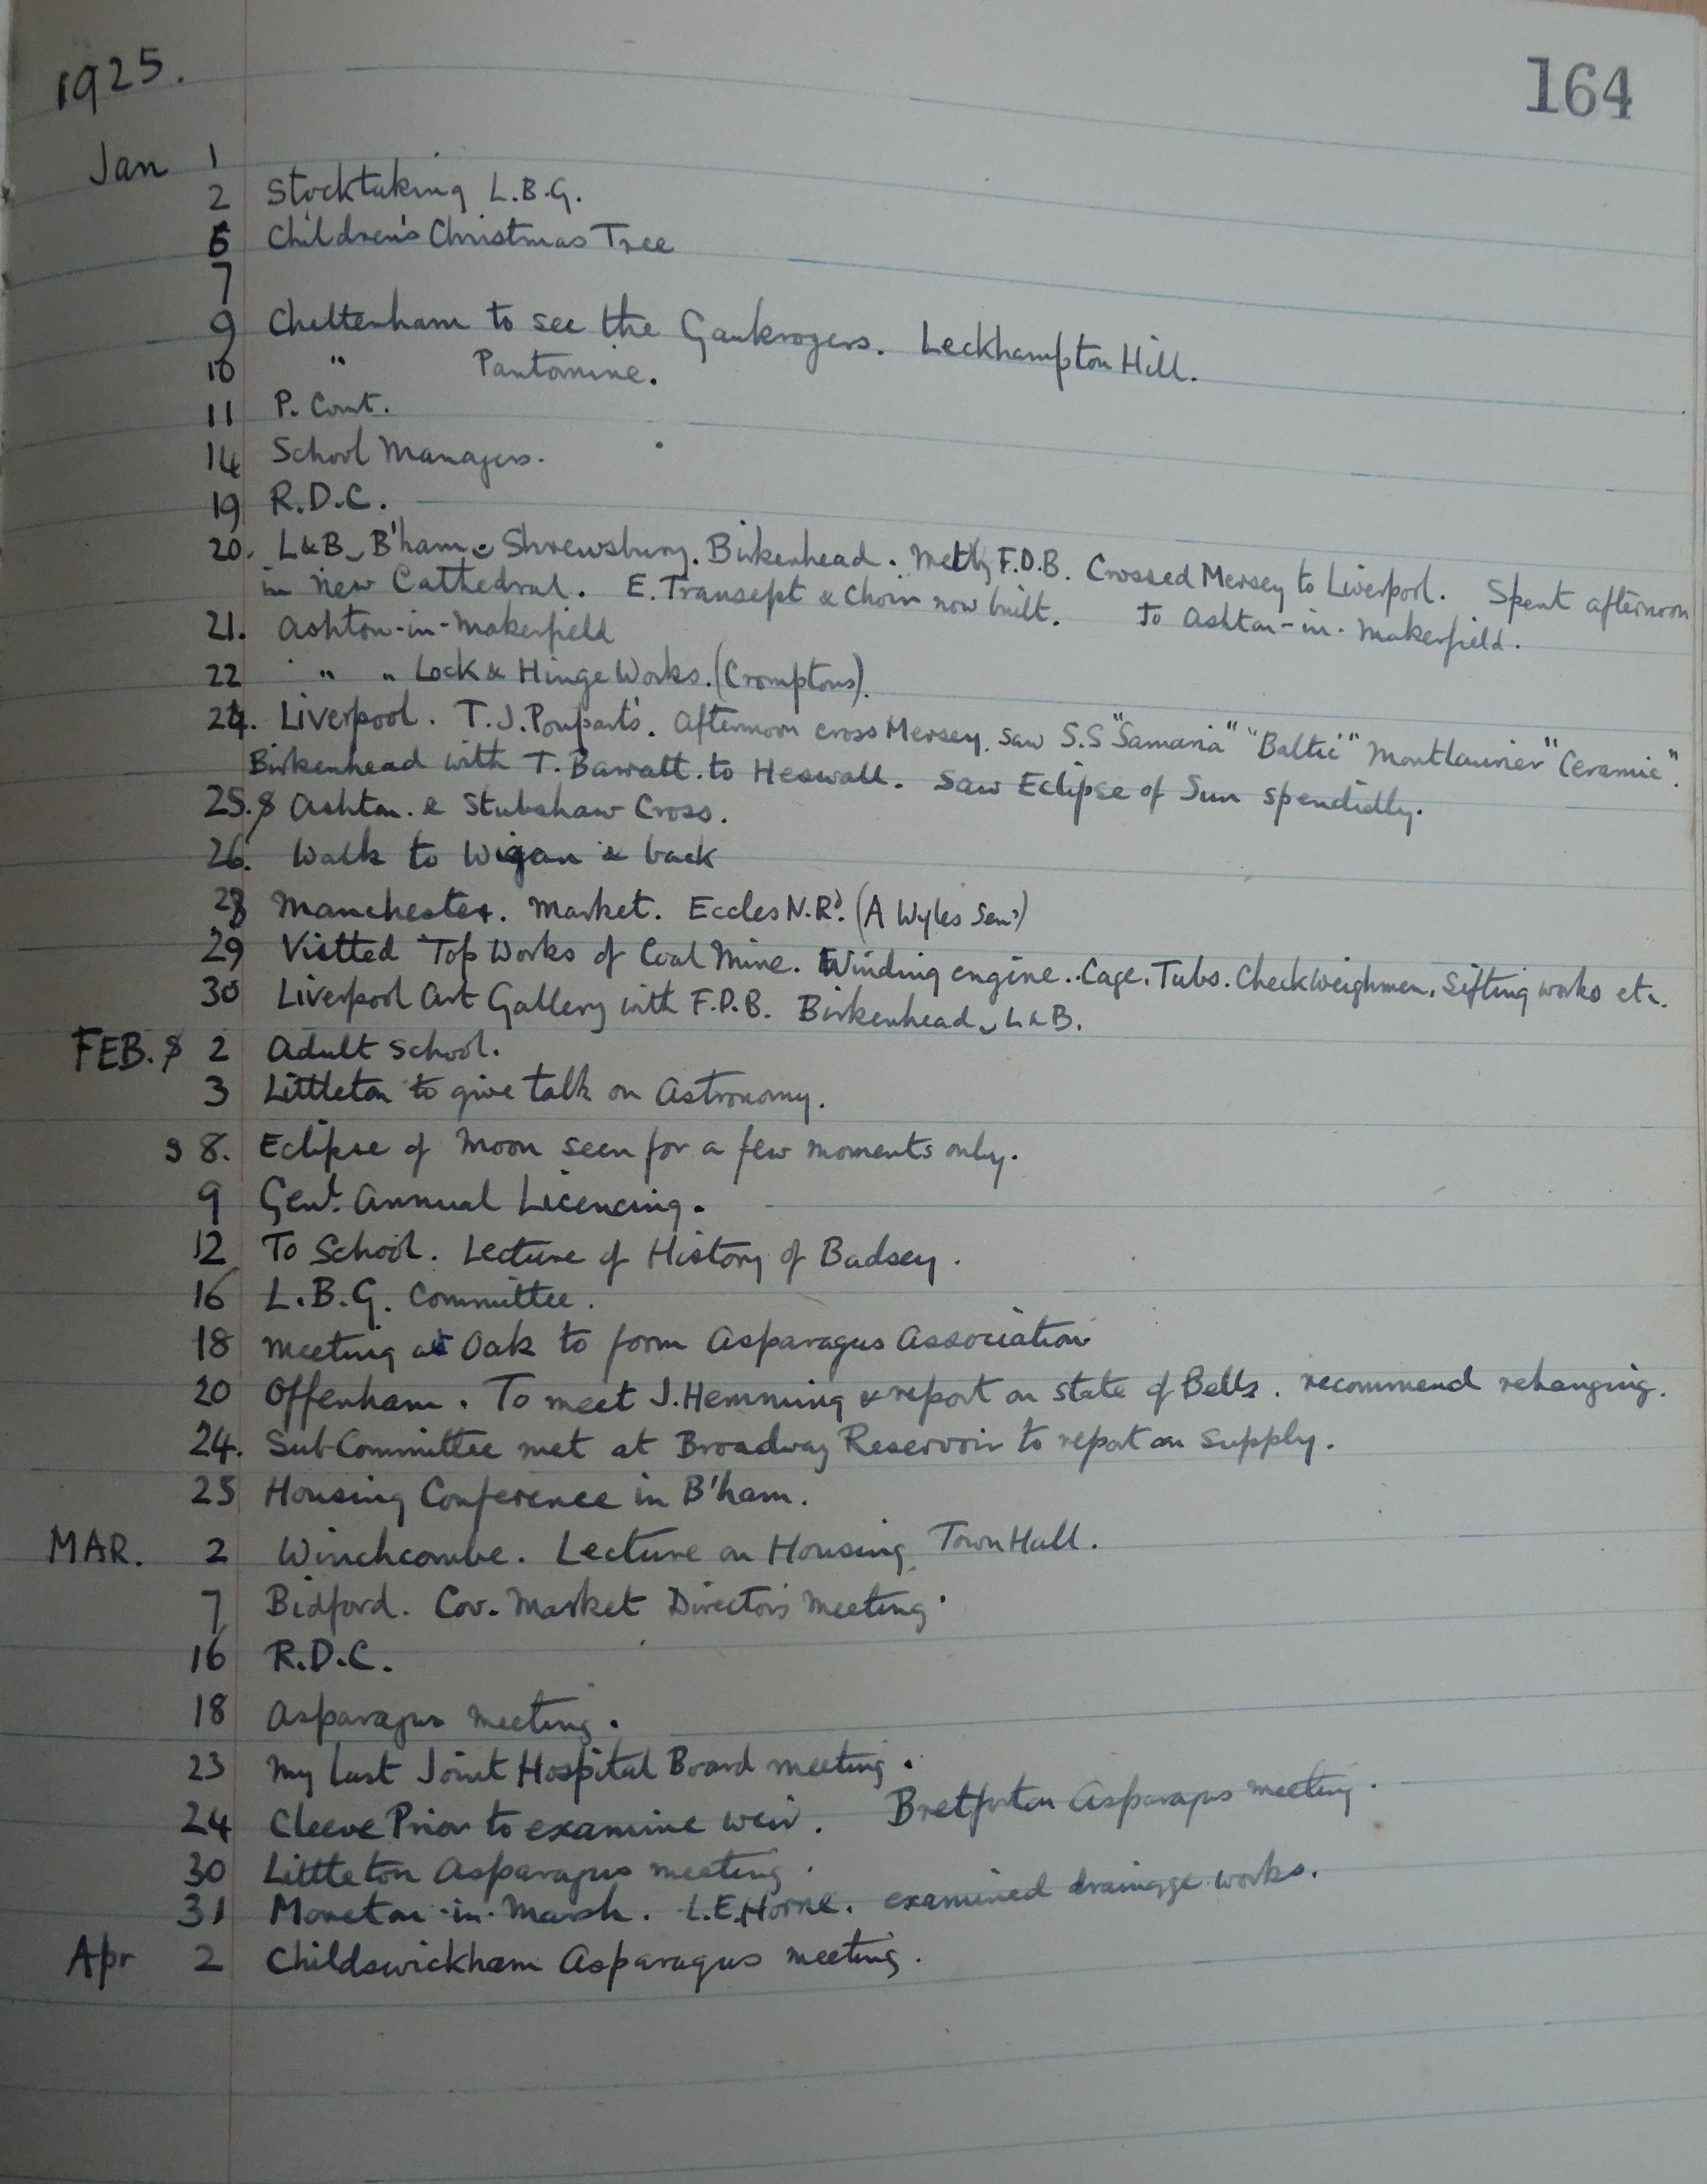 1925.
164
Jan 1
2 Stocktaking L.B.G.
6 Children's Christmas Tree
7
9 Cheltenham to see the Gaukrogers. Leckhampton Hill.
10 " Pantomine.
11 P. Cont.
14 School Managers.
19 R.D.C.
20. L&B B'ham Shrewsbury. Birkenhead. Met by F.D.B. Crossed Mersey to Liverpool. Spent afternoon
in New Cathedral. E. Transept & Choir now built. To Ashton-in-Makerfield.
21. Ashton-in-Makerfield
22 " " Lock & Hinge Works. (Cromptons).
24. Liverpool. T.J. Poupart's. Afternoon cross Mersey. Saw S.S "Samaria" "Baltic" Montlaurier" "Ceramic".
Birkenhead with T. Barratt. to Heswall. Saw Eclipse of Sun spendidly.
25. S Ashton. & Stubshaw Cross.
26. Walk to Wigan & back
28 Manchester. Market. Eccles N.Rd. (A Wyles Senr)
29 Visited Top Works of Coal Mine. Winding engine. Cage. Tubs. Check Weighmen. Sifting works etc.
30 Liverpool Art Gallery with F.D.B. Birkenhead L&B.
FEB. S 2 Adult School.
3 Littleton to give talk on Astronomy.
S 8. Eclipse of Moon seen for a few moments only.
9 Genl. Annual Licencing.
12 To School. Lecture of History of Badsey.
16 L.B.G. Committee.
18 Meeting at Oak to form Asparagus Association
20 Offenham. To meet J. Hemming & report on state of Bells. recommend rehanging.
24. Sub-Committee met at Broadway Reservoir to report on supply.
25 Housing Conference in B'ham.
MAR. 2 Winchcombe. Lecture on Housing, Town Hall.
7 Bidford. Cov. Market Directors meeting.
16 R.D.C.
18 Asparagus meeting.
23 My last Joint Hospital Board meeting.
24 Cleeve Prior to examine weir. Bretforton Asparagus meeting.
30 Littleton Asparagus meeting.
31 Moreton-in-Marsh. L.E. Horne. examined drainage works.
Apr 2 Childswickham Asparagus meeting.